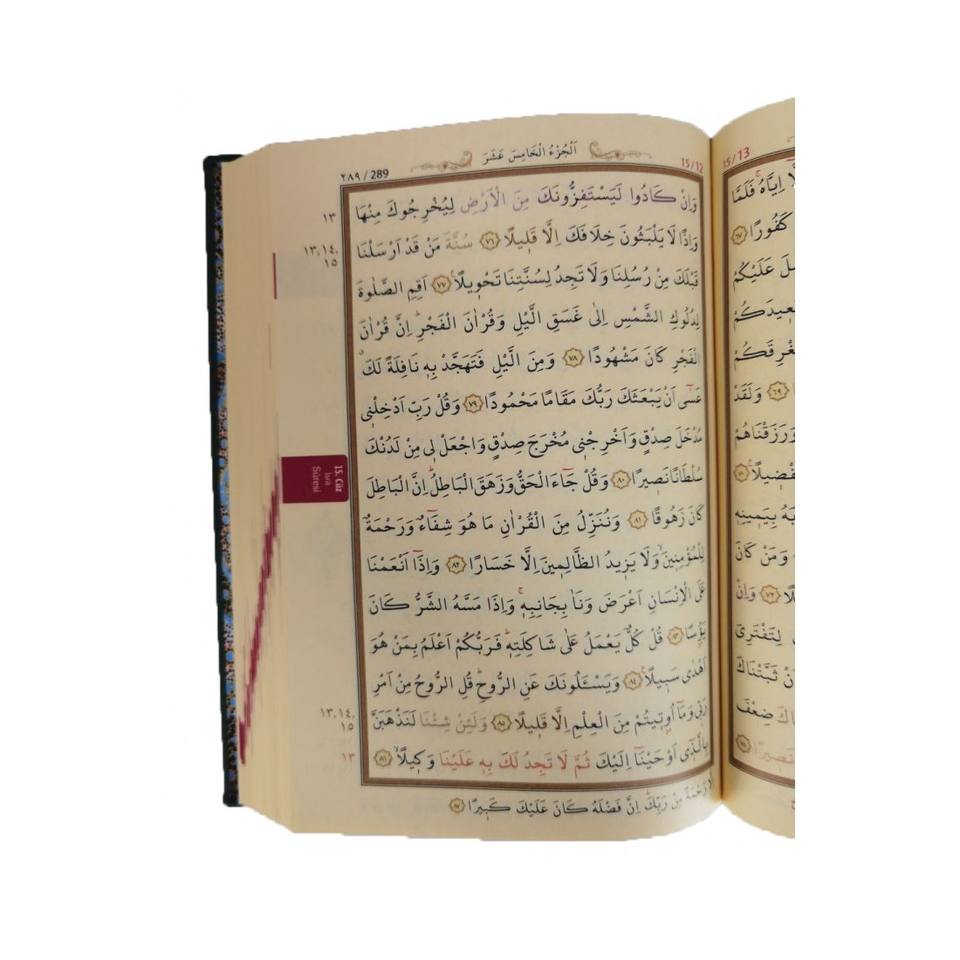 اَلْجُزْءُ الْخَامِسَ عَشَرَ
٢٨٩ / 289
15/12
وَاِنْ كَادُوا لَيَسْتَفِزُّونَكَ مِنَ الْاَرْضِ لِيُخْرِجُوكَ مِنْهَا
وَاِذًا لَا يَلْبَثُونَ خِلَافَكَ اِلَّا قَلٖيلًا ﴿٧٦﴾ سُنَّةَ مَنْ قَدْ اَرْسَلْنَا
قَبْلَكَ مِنْ رُسُلِنَا وَلَا تَجِدُ لِسُنَّتِنَا تَحْوٖيلًا ﴿٧٧﴾ اَقِمِ الصَّلٰوةَ
لِدُلُوكِ الشَّمْسِ اِلٰى غَسَقِ الَّيْلِ وَقُرْاٰنَ الْفَجْرِ اِنَّ قُرْاٰنَ
الْفَجْرِ كَانَ مَشْهُودًا ﴿٧٨﴾ وَمِنَ الَّيْلِ فَتَهَجَّدْ بِهٖ نَافِلَةً لَكَ
عَسٰٓى اَنْ يَبْعَثَكَ رَبُّكَ مَقَامًا مَحْمُودًا ﴿٧٩﴾ وَقُلْ رَبِّ اَدْخِلْنٖى
مُدْخَلَ صِدْقٍ وَاَخْرِجْنٖى مُخْرَجَ صِدْقٍ وَاجْعَلْ لٖى مِنْ لَدُنْكَ
سُلْطَانًا نَصٖيرًا ﴿٨٠﴾ وَقُلْ جَٓاءَ الْحَقُّ وَزَهَقَ الْبَاطِلُ اِنَّ الْبَاطِلَ
كَانَ زَهُوقًا ﴿٨١﴾ وَنُنَزِّلُ مِنَ الْقُرْاٰنِ مَا هُوَ شِفَٓاءٌ وَرَحْمَةٌ
لِلْمُؤْمِنٖينَ وَلَا يَزٖيدُ الظَّالِمٖينَ اِلَّا خَسَارًا ﴿٨٢﴾ وَاِذَٓا اَنْعَمْنَا
عَلَى الْاِنْسَانِ اَعْرَضَ وَنَاٰ بِجَانِبِهٖ وَاِذَا مَسَّهُ الشَّرُّ كَانَ
يَؤُسًا ﴿٨٣﴾ قُلْ كُلٌّ يَعْمَلُ عَلٰى شَاكِلَتِهٖ فَرَبُّكُمْ اَعْلَمُ بِمَنْ هُوَ
اَهْدٰى سَبٖيلًا ﴿٨٤﴾ وَيَسْـَٔلُونَكَ عَنِ الرُّوحِ قُلِ الرُّوحُ مِنْ اَمْرِ
رَبّٖى وَمَٓا اُو۫تٖيتُمْ مِنَ الْعِلْمِ اِلَّا قَلٖيلًا ﴿٨٥﴾ وَلَئِنْ شِئْنَا لَنَذْهَبَنَّ
بِالَّذٖٓى اَوْحَيْنَٓا اِلَيْكَ ثُمَّ لَا تَجِدُ لَكَ بِهٖ عَلَيْنَا وَكٖيلًا ﴿٨٦﴾
اِلَّا رَحْمَةً مِنْ رَبِّكَ اِنَّ فَضْلَهُ كَانَ عَلَيْكَ كَبٖيرًا ﴿٨٧﴾
١٣
١٣،١٤،
١٥
15. Cüz
İsrâ
Sûresi
١٣،١٤،
١٥
١٣
15/13
اِيَّاهُ فَلَمَّا
كَفُورًا ﴿٦٧﴾
عَلَيْكُمْ
﴿٦٩﴾ وَلَقَدْ
وَرَزَقْنَاهُمْ
بِيَمٖينِهٖ
وَمَنْ كَانَ
﴿٧٢﴾ وَاِنْ
لِتَفْتَرِىَ
ثَبَّتْنَاكَ
ضِعْفَ
نَصٖيرًا